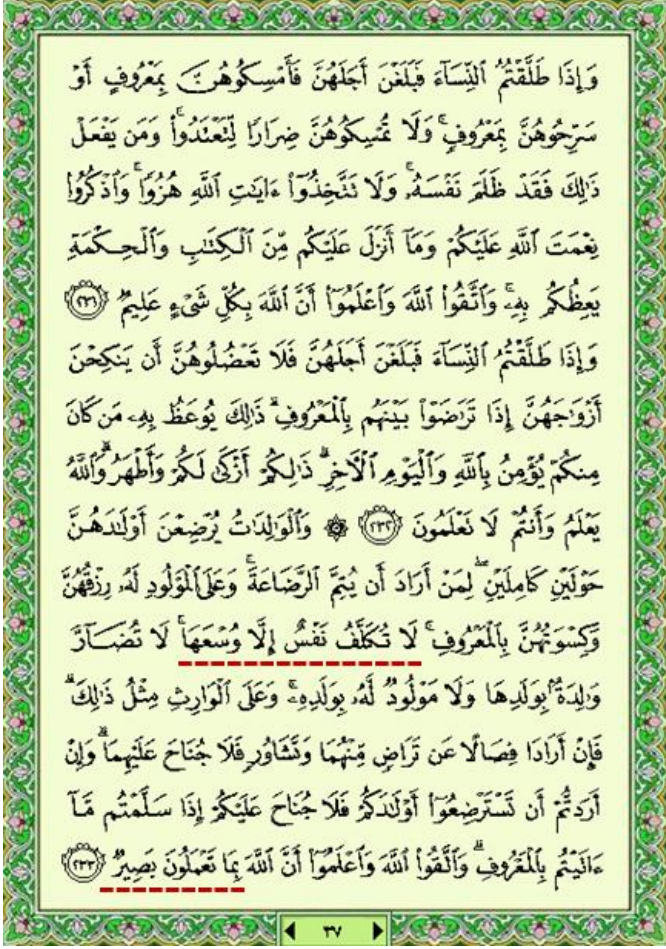 وَإِذَا طَلَّقْتُمُ ٱلنِّسَآءَ فَبَلَغْنَ أَجَلَهُنَّ فَأَمْسِكُوهُنَّ بِمَعْرُوفٍ أَوْ
سَرِّحُوهُنَّ بِمَعْرُوفٍۚ وَلَا تُمْسِكُوهُنَّ ضِرَارًا لِّتَعْتَدُوا۟ۚ وَمَن يَفْعَلْ
ذَٰلِكَ فَقَدْ ظَلَمَ نَفْسَهُۥۚ وَلَا تَتَّخِذُوٓا۟ ءَايَٰتِ ٱللَّهِ هُزُوًاۚ وَٱذْكُرُوا۟
نِعْمَتَ ٱللَّهِ عَلَيْكُمْ وَمَآ أَنزَلَ عَلَيْكُم مِّنَ ٱلْكِتَٰبِ وَٱلْحِكْمَةِ
يَعِظُكُم بِهِۦۚ وَٱتَّقُوا۟ ٱللَّهَ وَٱعْلَمُوٓا۟ أَنَّ ٱللَّهَ بِكُلِّ شَىْءٍ عَلِيمٌ ﴿٢٣١﴾
وَإِذَا طَلَّقْتُمُ ٱلنِّسَآءَ فَبَلَغْنَ أَجَلَهُنَّ فَلَا تَعْضُلُوهُنَّ أَن يَنكِحْنَ
أَزْوَٰجَهُنَّ إِذَا تَرَٰضَوْا۟ بَيْنَهُم بِٱلْمَعْرُوفِۗ ذَٰلِكَ يُوعَظُ بِهِۦ مَن كَانَ
مِنكُمْ يُؤْمِنُ بِٱللَّهِ وَٱلْيَوْمِ ٱلْءَاخِرِۗ ذَٰلِكُمْ أَزْكَىٰ لَكُمْ وَأَطْهَرُۗ وَٱللَّهُ
يَعْلَمُ وَأَنتُمْ لَا تَعْلَمُونَ ﴿٢٣٢﴾ ۞ وَٱلْوَٰلِدَٰتُ يُرْضِعْنَ أَوْلَٰدَهُنَّ
حَوْلَيْنِ كَامِلَيْنِۖ لِمَنْ أَرَادَ أَن يُتِمَّ ٱلرَّضَاعَةَۚ وَعَلَى ٱلْمَوْلُودِ لَهُۥ رِزْقُهُنَّ
وَكِسْوَتُهُنَّ بِٱلْمَعْرُوفِۚ لَا تُكَلَّفُ نَفْسٌ إِلَّا وُسْعَهَاۚ لَا تُضَآرَّ
وَٰلِدَةٌۢ بِوَلَدِهَا وَلَا مَوْلُودٌ لَّهُۥ بِوَلَدِهِۦۚ وَعَلَى ٱلْوَارِثِ مِثْلُ ذَٰلِكَۗ
فَإِنْ أَرَادَا فِصَالًا عَن تَرَاضٍ مِّنْهُمَا وَتَشَاوُرٍ فَلَا جُنَاحَ عَلَيْهِمَاۗ وَإِنْ
أَرَدتُّمْ أَن تَسْتَرْضِعُوٓا۟ أَوْلَٰدَكُمْ فَلَا جُنَاحَ عَلَيْكُمْ إِذَا سَلَّمْتُم مَّآ
ءَاتَيْتُم بِٱلْمَعْرُوفِۗ وَٱتَّقُوا۟ ٱللَّهَ وَٱعْلَمُوٓا۟ أَنَّ ٱللَّهَ بِمَا تَعْمَلُونَ بَصِيرٌ ﴿٢٣٣﴾
٣٧